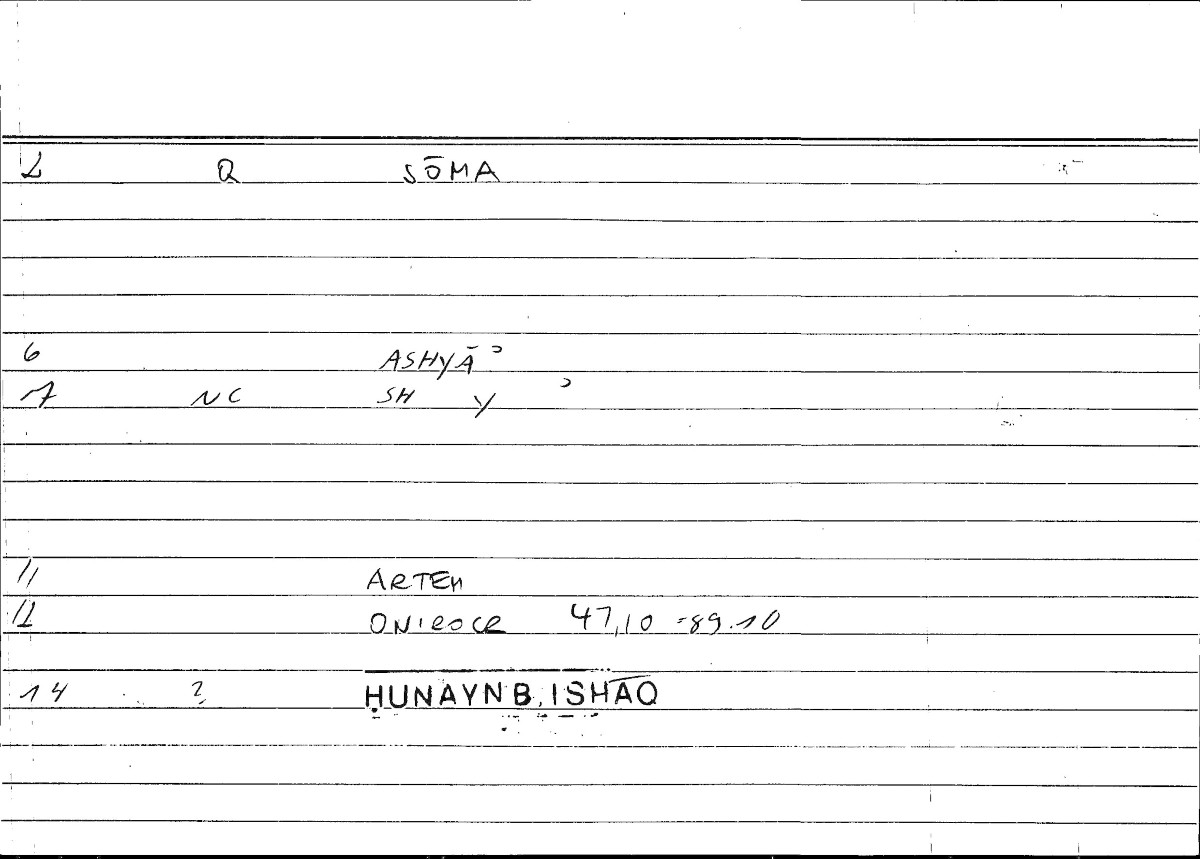 2 Q SŌMA
6 ASHYĀʾ
7 NC SH Y ʾ
11 ARTEM
12 ONIROCR 47,10-89.10
14 2 ḤUNAYN B. ISḤĀQ